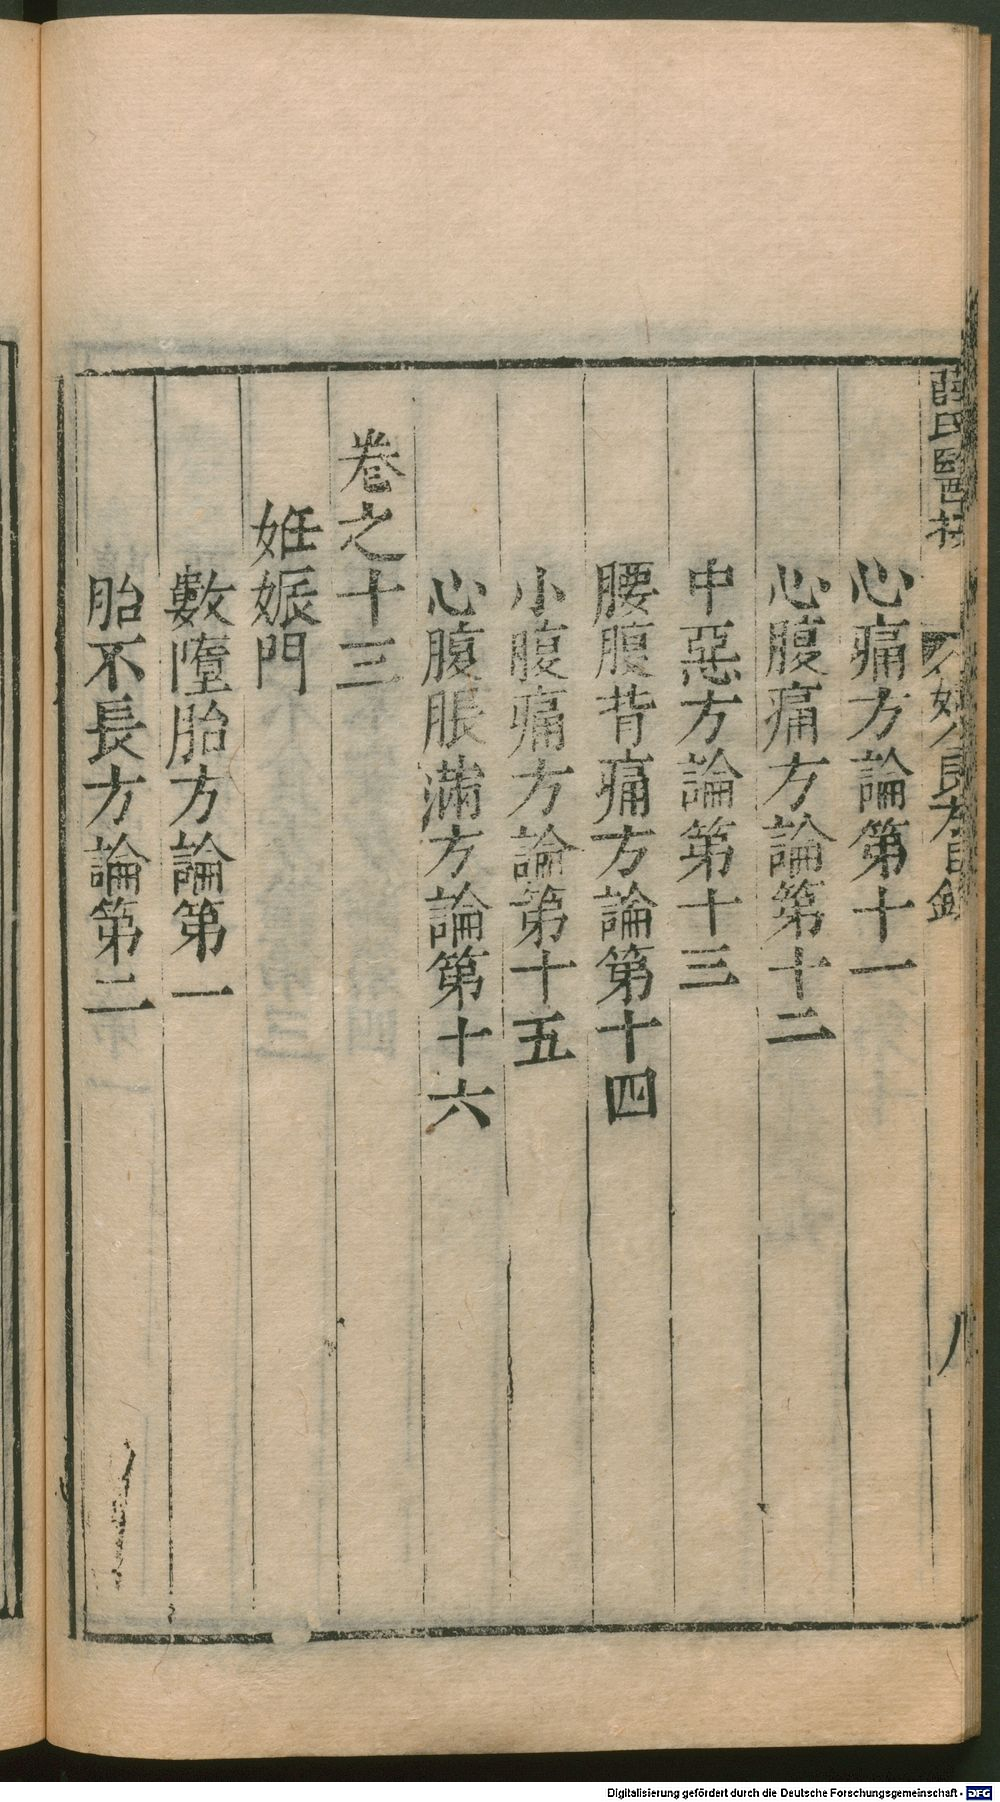 薛氏醫按 婦人良方目錄 八
心痛方論第十一
心腹痛方論第十二
中惡方論第十三
腰腹背痛方論第十四
小腹痛方論第十五
心腹脹滿方論第十六
卷之十三
妊娠門
數墮胎方論第一
胎不長方論第二
Digitalisierung gefördert durch die Deutsche Forschungsgemeinschaft - DFG